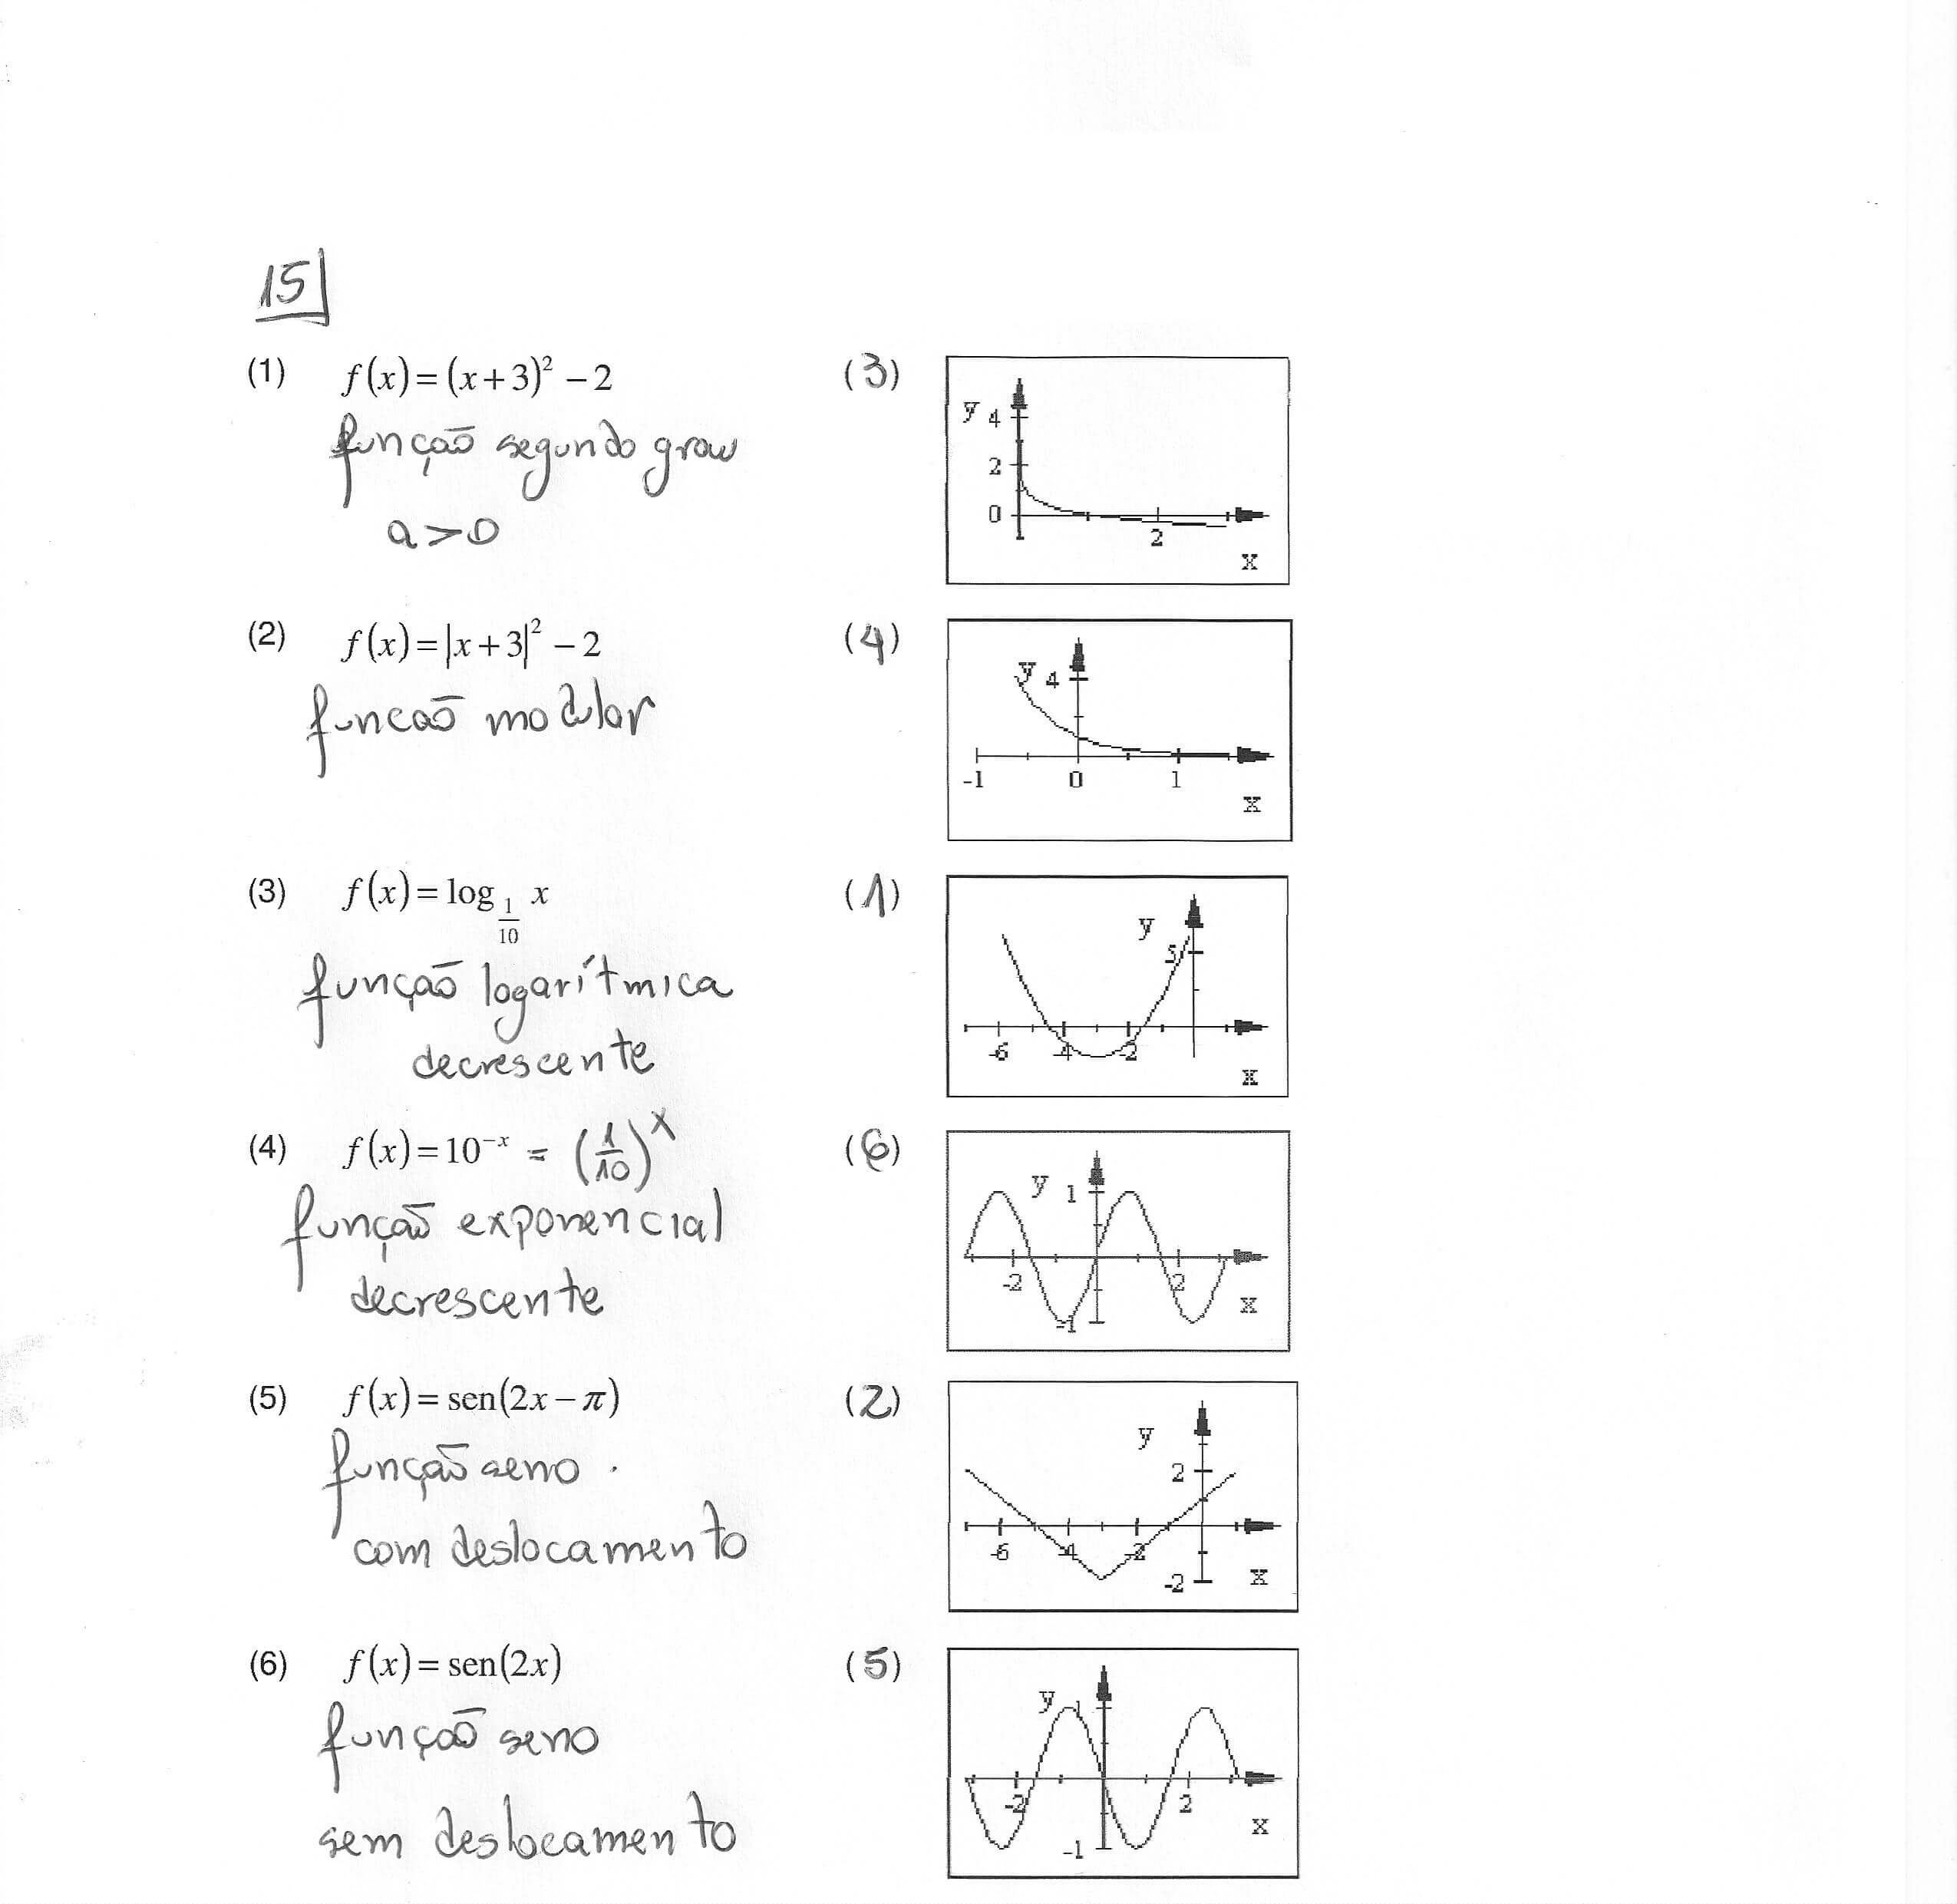 15
(1) f(x) = (x+3)² − 2 (3)
função segundo grau
a > 0
y 4
2
0
2
x
(2) f(x) = |x+3|² − 2 (4)
funcão modular
y 4
-1 0 1
x
(3) f(x) = log_{1/10} x (1)
função logarítmica
decrescente
y
5
-6 -4 -2
x
(4) f(x) = 10⁻ˣ = (1/10)ˣ (6)
função exponencial
decrescente
y 1
-2 2
-1
x
(5) f(x) = sen(2x − π) (2)
função seno
com deslocamento
y
2
-6 -4 -2
-2
x
(6) f(x) = sen(2x) (5)
função seno
sem deslocamento
y 1
-2 2
-1
x